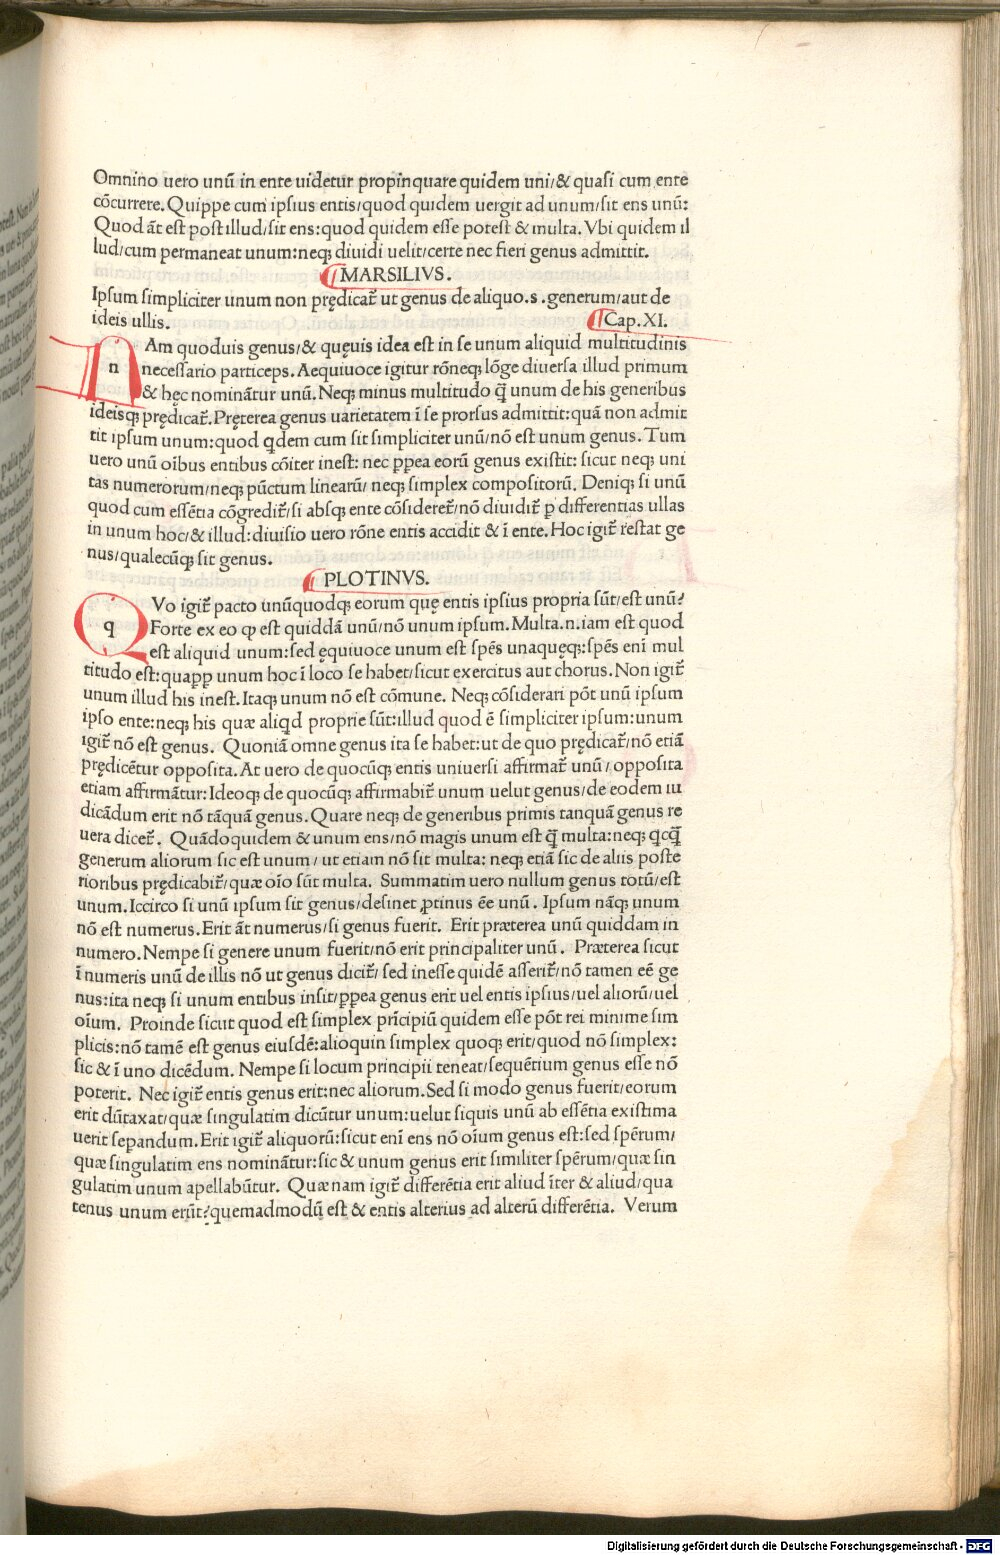 Omnino uero unū in ente uidetur propinquare quidem uni/& quasi cum ente
cōcurrere. Quippe cum ipsius entis/quod quidem uergit ad unum/sit ens unū:
Quod āt est post illud/sit ens:quod quidem esse potest & multa. Vbi quidem il
lud/cum permaneat unum:neq; diuidi uelit/certe nec fieri genus admittit.
MARSILIVS.
Ipsum simpliciter unum non prędicat᷑ ut genus de aliquo.s.generum/aut de
ideis ullis. Cap.XI.
n Am quoduis genus/& quęuis idea est in se unum aliquid multitudinis
necessario particeps. Aequiuoce igitur rōneq; lōge diuersa illud primum
& hęc nominātur unū. Neq; minus multitudo q̄ unum de his generibus
ideisq; prędicat᷑. Pręterea genus uarietatem ī se prorsus admittit:quā non admit
tit ipsum unum:quod qdem cum sit simpliciter unū/nō est unum genus. Tum
uero unū oībus entibus cōiter inest: nec ꝓpea eorū genus existit: sicut neq; uni
tas numerorum/neq; pūctum linearū/ neq; simplex compositorū. Deniq; si unū
quod cum essētia cōgredit᷑/si absq; ente cōsideret᷑/nō diuidit᷑ ꝑ differentias ullas
in unum hoc/& illud:diuisio uero rōne entis accidit & ī ente. Hoc igit᷑ restat ge
nus/qualecūq; sit genus.
PLOTINVS.
q Vo igit᷑ pacto unūquodq; eorum quę entis ipsius propria sūt/est unū?
Forte ex eo ꝙ est quiddā unū/nō unum ipsum. Multa.n.iam est quod
est aliquid unum:sed ęquiuoce unum est spēs unaquęq;:spēs enī mul
titudo est:quaꝓp unum hoc ī loco se habet/sicut exercitus aut chorus. Non igit᷑
unum illud his inest. Itaq; unum nō est cōmune. Neq; cōsiderari pōt unū ipsum
ipso ente:neq; his quæ aliqd proprie sūt:illud quod ē simpliciter ipsum:unum
igit᷑ nō est genus. Quoniā omne genus ita se habet:ut de quo prędicat᷑/nō etiā
prędicētur opposita. At uero de quocūq; entis uniuersi affirmat᷑ unū/opposita
etiam affirmātur:Ideoq; de quocūq; affirmabit᷑ unum uelut genus/de eodem iu
dicādum erit nō tāquā genus. Quare neq; de generibus primis tanquā genus re
uera dicet᷑. Quādoquidem & unum ens/nō magis unum est q̄ multa:neq; qcq̄
generum aliorum sic est unum/ ut etiam nō sit multa: neq; etiā sic de aliis poste
rioribus prędicabit᷑/quæ oīo sūt multa. Summatim uero nullum genus totū/est
unum. Iccirco si unū ipsum sit genus/desinet ꝓtinus ēe unū. Ipsum nāq; unum
nō est numerus. Erit āt numerus/si genus fuerit. Erit præterea unū quiddam in
numero. Nempe si genere unum fuerit/nō erit principaliter unū. Præterea sicut
ī numeris unū de illis nō ut genus dicit᷑/ sed inesse quidē asserit᷑/nō tamen eē ge
nus:ita neq; si unum entibus insit/ꝓpea genus erit uel entis ipsius/uel aliorū/uel
oīum. Proinde sicut quod est simplex prīcipiū quidem esse pōt rei minime sim
plicis:nō tamē est genus eiusdē:alioquin simplex quoq; erit/quod nō simplex:
sic & ī uno dicēdum. Nempe si locum principii teneat/sequētium genus esse nō
poterit. Nec igit᷑ entis genus erit:nec aliorum. Sed si modo genus fuerit/eorum
erit dūtaxat/quæ singulatim dicūtur unum:uelut siquis unū ab essētia existima
uerit sepandum. Erit igit᷑ aliquorū:sicut enī ens nō oīum genus est:sed spērum/
quæ singulatim ens nominātur:sic & unum genus erit similiter spērum/quæ sin
gulatim unum apellabūtur. Quænam igit᷑ differētia erit aliud īter & aliud/qua
tenus unum erūt?quemadmodū est & entis alterius ad alterū differētia. Verum
Digitalisierung gefördert durch die Deutsche Forschungsgemeinschaft - DFG